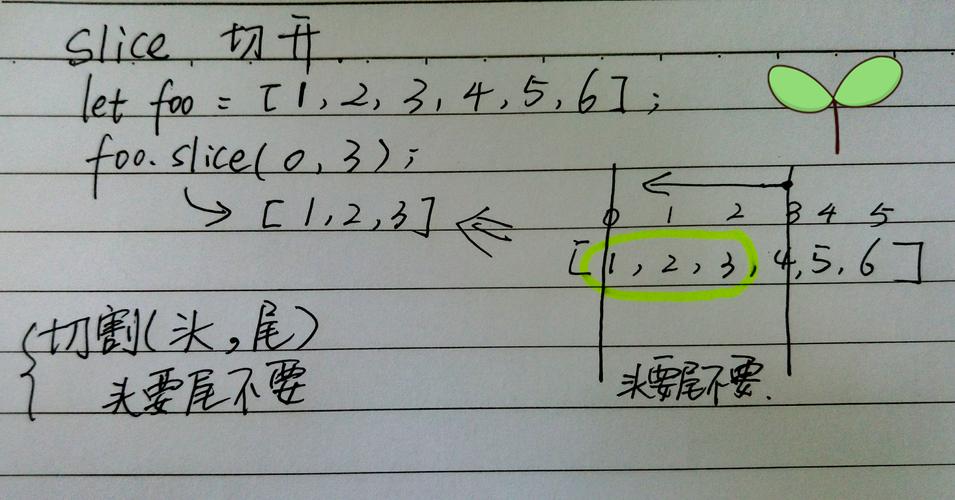 slice 切开
let foo = [1, 2, 3, 4, 5, 6];
foo.slice(0, 3);
[1, 2, 3]
0 1 2 3 4 5
[1, 2, 3, 4, 5, 6]
切割(头,尾)
头要尾不要
头要尾不要.